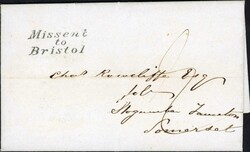 Missent
to
Bristol
Chas Rowcliffe Esq
Stogumber Taunton
Somerset